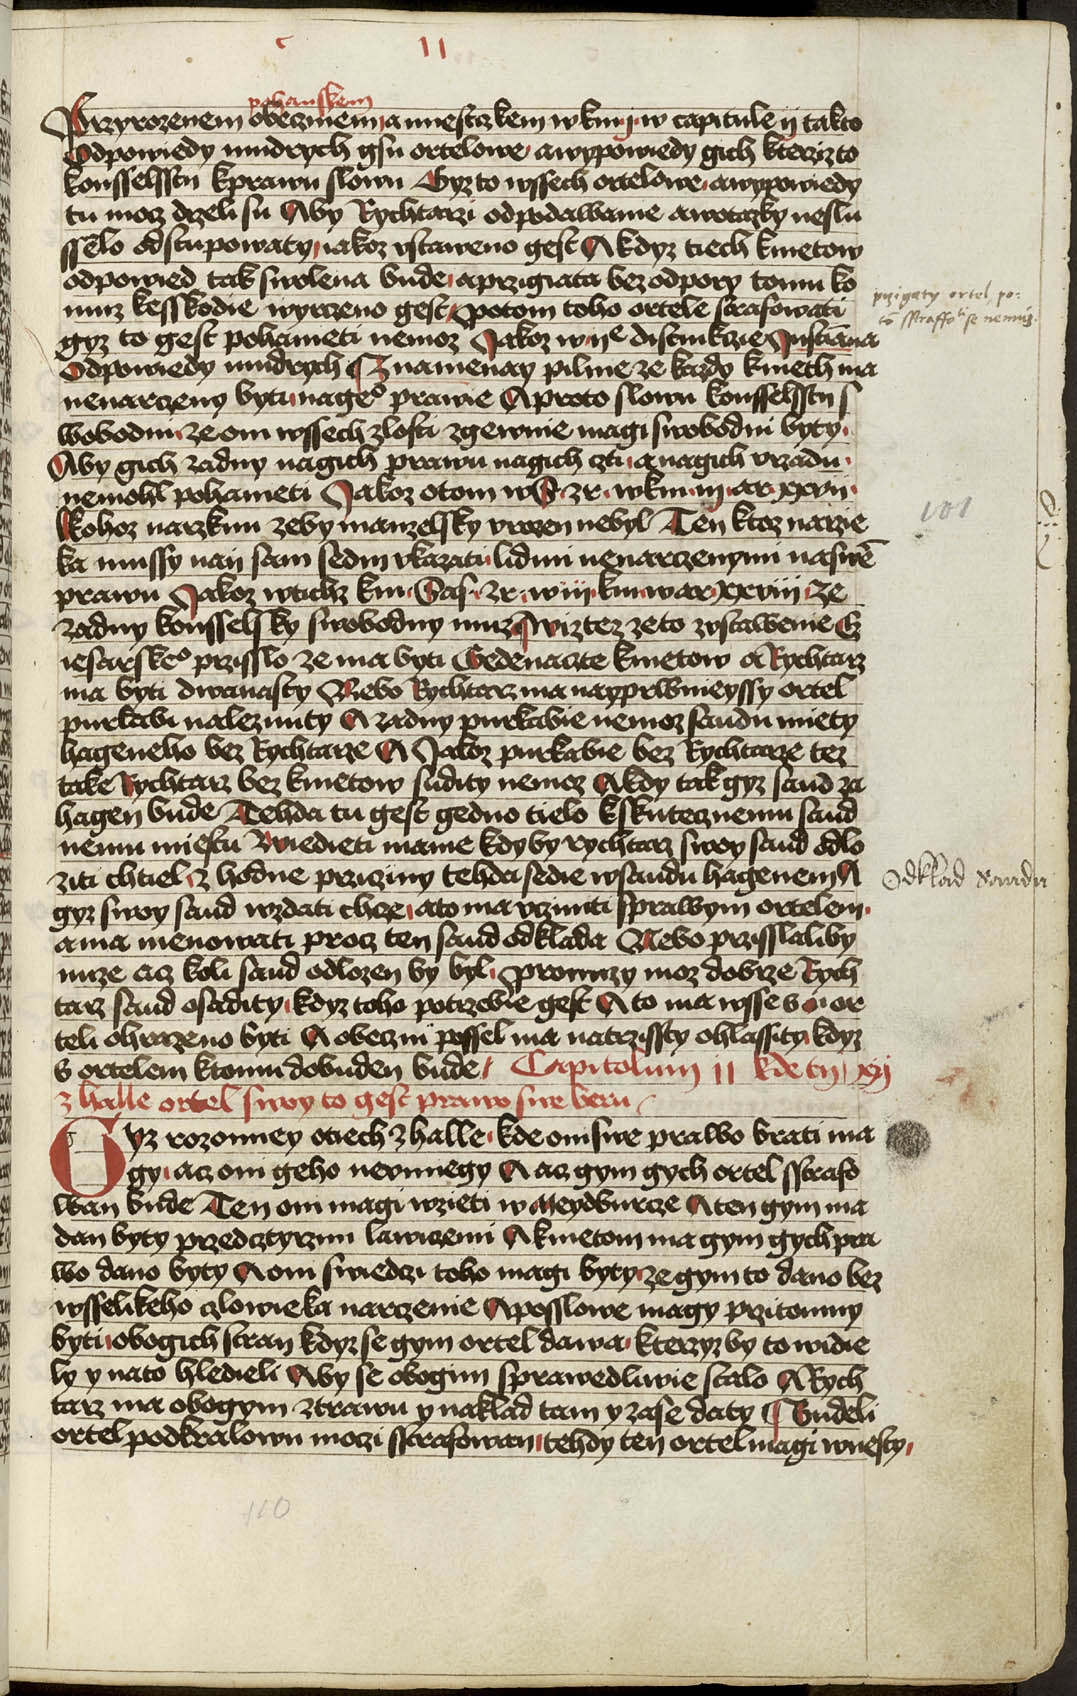 II
pohanskem
Przyrozenem obecznem a miestczkem w knij w capitule ij takto
Odpowiedy mudrych gsu ortelowe awypowiedy gich kterizto
konsselsstu kprawu slowu Gyzto wssech ortelowe awypowiedy
tu mocz drzeli su Aby Rychtarzi odpodawanie awotazky neslu
sselo odstupowaty iakoz vstaweno gest A kdyz tiech kmetow
odpowied tak swolena bude aprzigiata bez odpory tomu ko
muz kesskodie wyrzczeno gest potom toho ortele strafowati
gyz to gest pohanieti nemoz Jakoz w ne distinkczie Justiana
Odpowiedy mudrych Znamenay pilnie ze kazdy kmeth ma
nenarczeny byti nageo prawie A proto slowu konsselsstu s
wobodni ze oni wssech zlosti zgewnie magi swobodni byty
Aby gich zadny nagich prawu nagich czti a nagich vrzadu
nemohl pohanieti Jakoz otom
kohoz narzknu zeby manzelsky vrozen nebyl Ten ktoz narzie
ka mussy nan sam sedm vkazati lidmi nenarczenymi naswe
prawu Jakoz wtichz kni Sas zr w iii kni war xxviii ze
zadny konsselsky swobodny muz Awiz tez zeto zvstawenie Cz
iesarskeo przisslo ze ma byti Gedenaczte kmetow a Rychtarz
ma byti dwanasty Nebo Rychtarz ma nayprwnieyssy ortel
purkabi naleznuty A zadny purkabie nemoz saudu miety
hageneho bez Rychtarze A Jakoz purkabie bez Rychtarze tez
take Rychtarz bez kmetow sudity nemoz Akdy tak gyz saud za
hagen bude Tehda tu gest gedno tielo kskutecznemu saud
nemu miestu Wiedieti mame kdyby rychtarz swoy saud odlo
ziti chtiel z hodne prziczyny tehda sedie wsaudu hagenem A
gyz swoy saud wzdati chcze ato ma vcziniti sprawym ortelem
ama menowati procz ten saud odklada Nebo przisslaliby
nuze acz koli saud odlozen by byl promuzy moz dobrze Rych
tarz saud osadity kdyz toho potrzebie gest A to ma wsse s or
teli ohrazeno byti A obeczni possel ma natrzissty ohlassity kdyz
s ortelem ktomu dobuden bude Capitolum II kde ty xij
z halle ortel swoy to gest prawo swe beru
Gyz rozomiey otiech z halle kde oni swe prawo brati ma
gy acz oni geho neumiegy A acz gym gych ortel sstrafo
wan bude Ten oni magi wzieti w Meydburcze A ten gym ma
dan byty przed cztyrzmi lawiczemi A kmetom ma gym gych pra
wo dano byty A oni swiedczi toho magi byty ze gym to dano bez
wsselikeho czlowieka narczenie A posslowe magy przitomny
byti obogich stran kdyz se gym ortel dawa kterzyz by to widie
ly y nato hledieli Aby se obogim sprawedliwie stalo A Rych
tarz ma obogym ztrawu y naklad tam y zase daty Budeli
ortel podkralowu moczi sstrafowan tehdy ten ortel magi wnesty
przigaty ortel po:
to sstraffoti se nemuz.
101
Odklad saudu
110